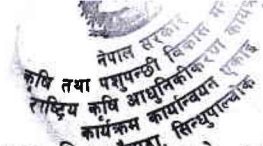 नेपाल सरकार
कृषि तथा पशुपन्छी विकास
राष्ट्रिय कृषि आधुनिकीकरण कार्यक्रम
कार्यक्रम कार्यान्वयन एकाई
सिन्धुपाल्चोक